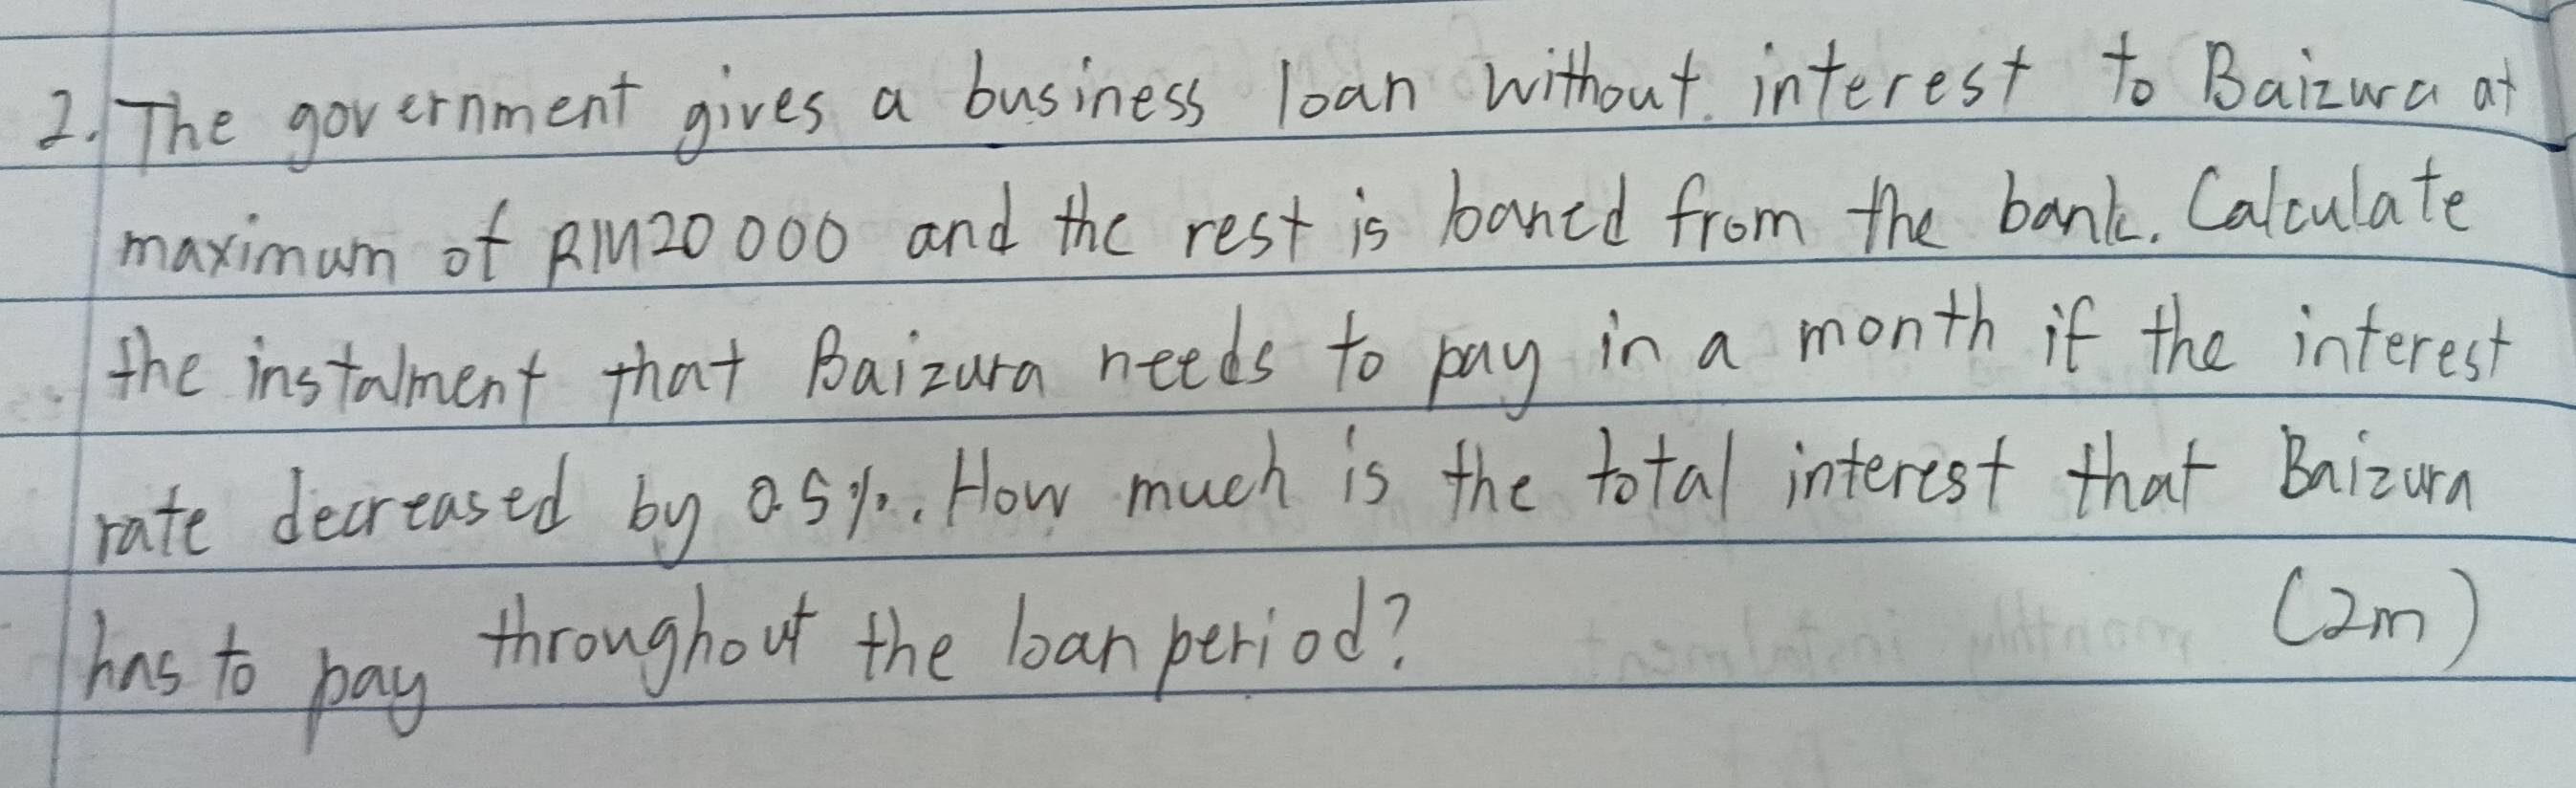 2. The government gives a business loan without interest to Baizura at
maximum of RM20 000 and the rest is loaned from the bank. Calculate
the instalment that Baizura needs to pay in a month if the interest
rate decreased by 0.5%. How much is the total interest that Baizura
has to pay throughout the loan period? (2m)